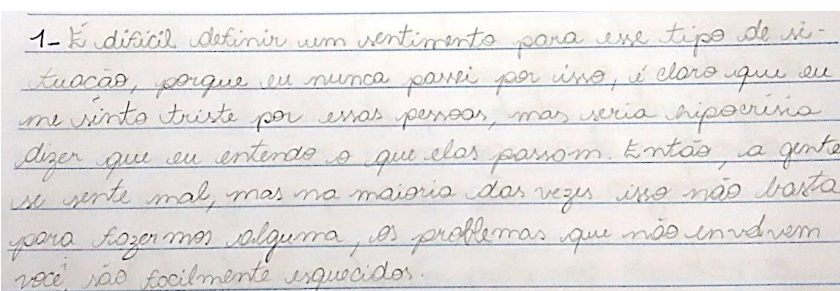 1- É difícil definir um sentimento para esse tipo de si-
tuação, porque eu nunca passei por isso, é claro que eu
me sinto triste por essas pessoas, mas seria hipocrisia
dizer que eu entendo o que elas passam. Então, a gente
se sente mal, mas na maioria das vezes isso não basta
para fazermos alguma, os problemas que não envolvem
você, são facilmente esquecidos.